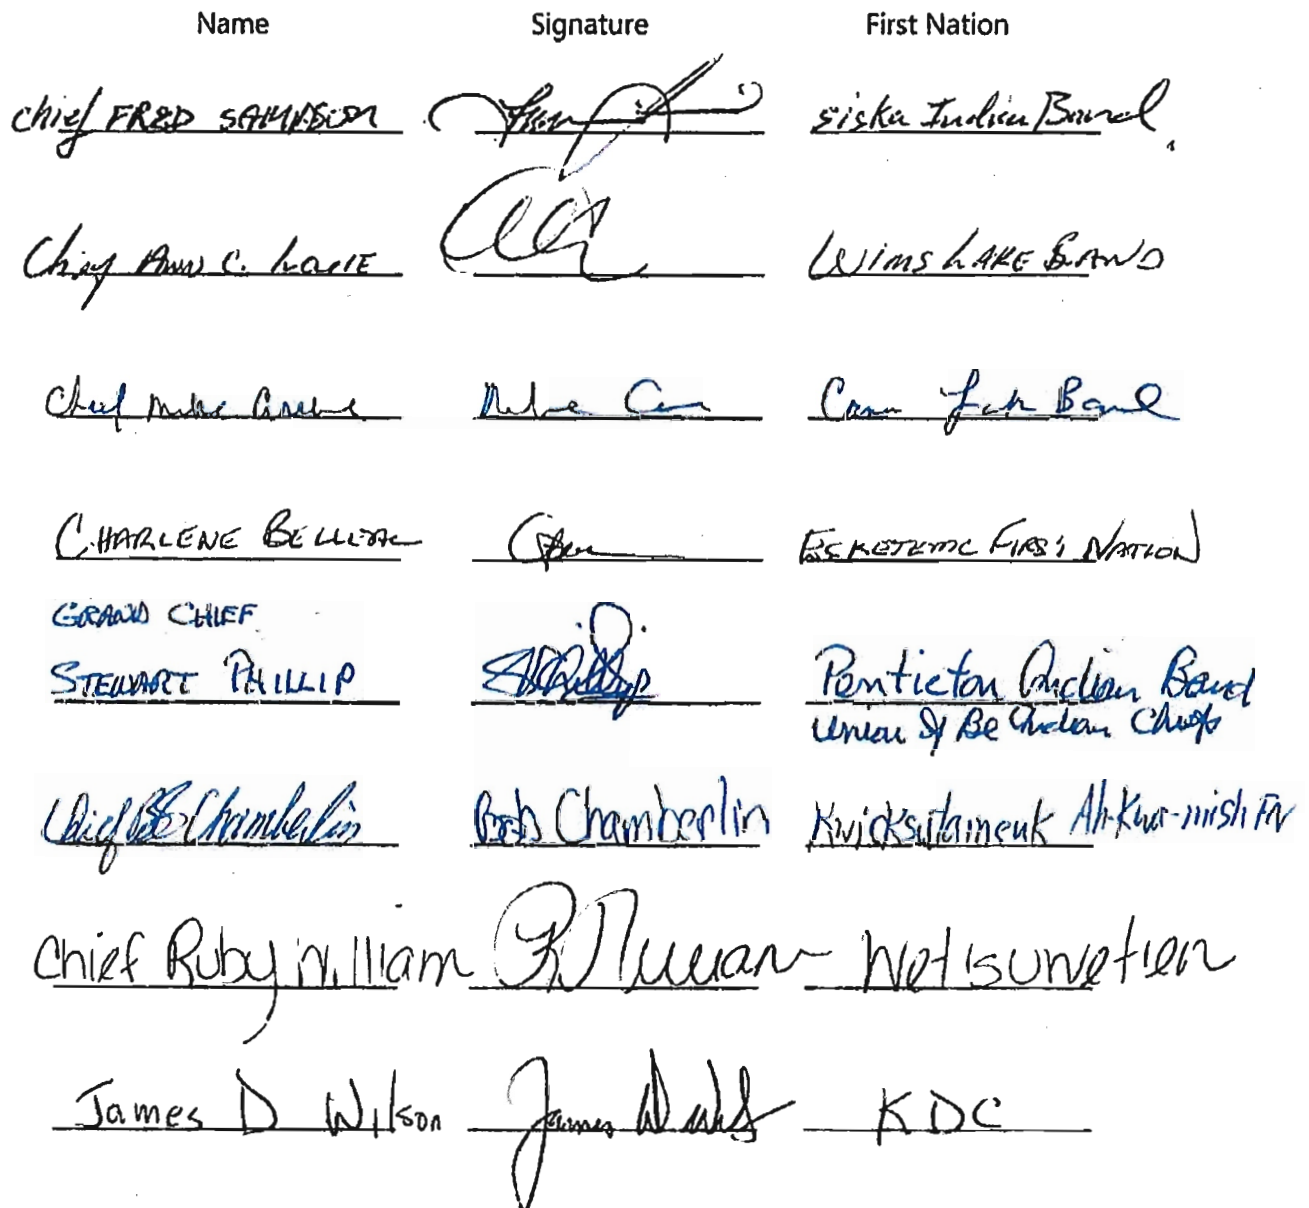 Name Signature First Nation
Chief FRED SAMPSON siska Indian Band
Chief ANN C. LOUIE WLMS LAKE BAND
Chief Mike Band
CHARLENE BELLEAU ESKETEMC FIRST NATION
GRAND CHIEF
STEWART PHILLIP SPhillip Penticton Indian Band
Union of BC Indian Chiefs
Chief Bob Chamberlin Bob Chamberlin Kwicksutaineuk Ah-Kwa-mish FN
Chief Ruby William Netsuwetien
James D Wilson James D KDC